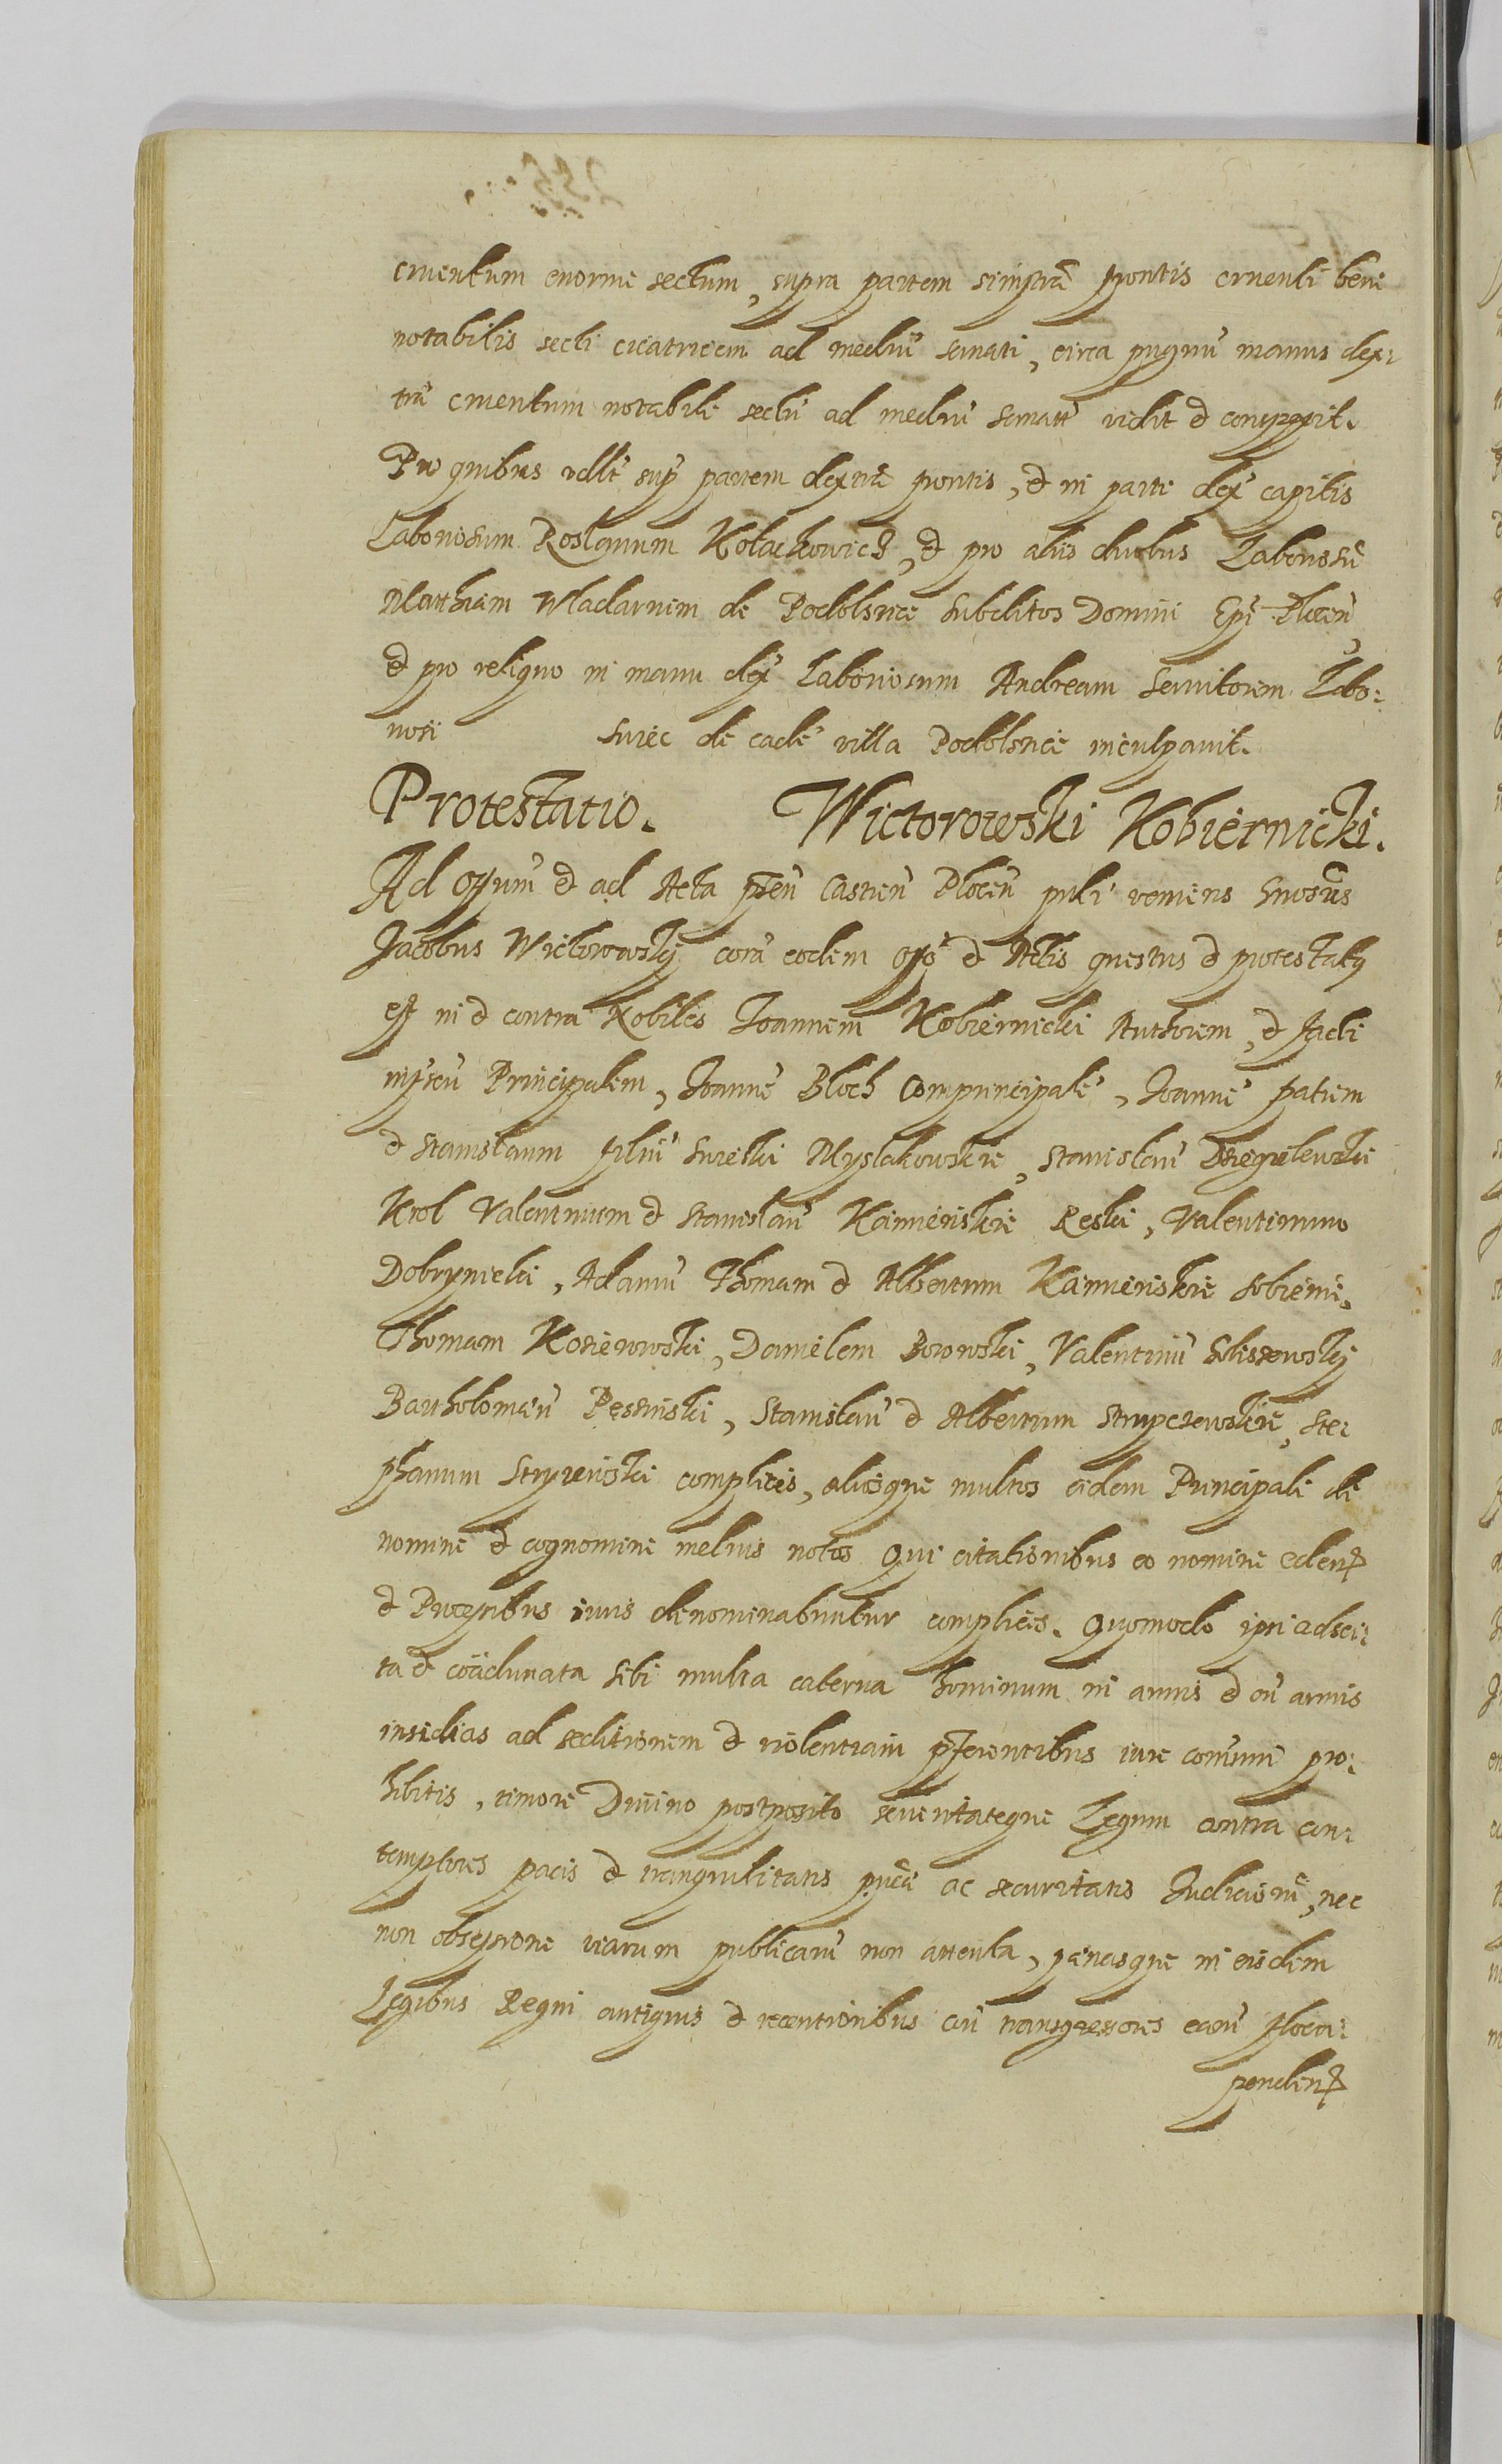 cruentum enorme sectum, supra partem sinistrā frontis cruenti bene
notabilis secti cicatricem ad mediū sanati, circa pugnū manus dex:
træ cruentum notabile sectū ad mediū sanatū vidit et conspexit.
Pro quibus supr partem dextrā frontis, et in parte dex capitis
Laboriosum Roslanum Kołackowicz, et pro aliis duobus Laboriosū
Matthiam Wladarnem de Podolsnce Subditos Domini Epī Plocen
et pro reliquo in manu dex Laboriosum Andream Servitorem Labo:
riosi Suiec de eadē villa Podolsnce inculpavit.
Protestatio. Wictorowski Kobiernicki.
Ad offum et ad Acta pñtū Castrēn Plocēn veniens Gnosus
Jacobus Wictorowskij corā eodem offo et Actis questus et protestatus
est in et contra Nobiles Joannem Kobiernicki Authorem, et facti
infrscū Principalem, Joannē Bloch Comprincipalē, Joannē patrem
et Stanislaum filiū Swieski Myslakowskie, Stanislaū Dzięgielewski
Krol Valentinum et Stanislaū Kamienskie Reski, Valentinum
Dobrynicki, Adamū Thomam et Albertum Kamienskie Sobienie,
Thomam Kosiorowski, Danielem Borowski, Valentinū Schissewskij
Bartholomæū Pęssinski, Stanislaū et Albertum Strupczewskie, Ste:
phanum Stryzewski complices, aliosque multos eidem Principali de
nomine et cognomine melius notos qui citationibus eo nomine eden
et Processibus iuris denominabuntur complices. Quomodo ipsi adsci:
ta et coadunata sibi multa caterva hominum in armis et cū armis
insidias ad seditionem et violentiam præferentibus iure comuni pro:
hibitis, timore Divino postposito severitateque Legum contra con:
temptores pacis et tranquilitatis pucæ ac securitatis Judiciorū, nec
non obsessione viarum publicarū non attenta, pænasque in eisdem
Legibus Regni antiquis et recentioribus cōn transgressores eorū floca:
penden